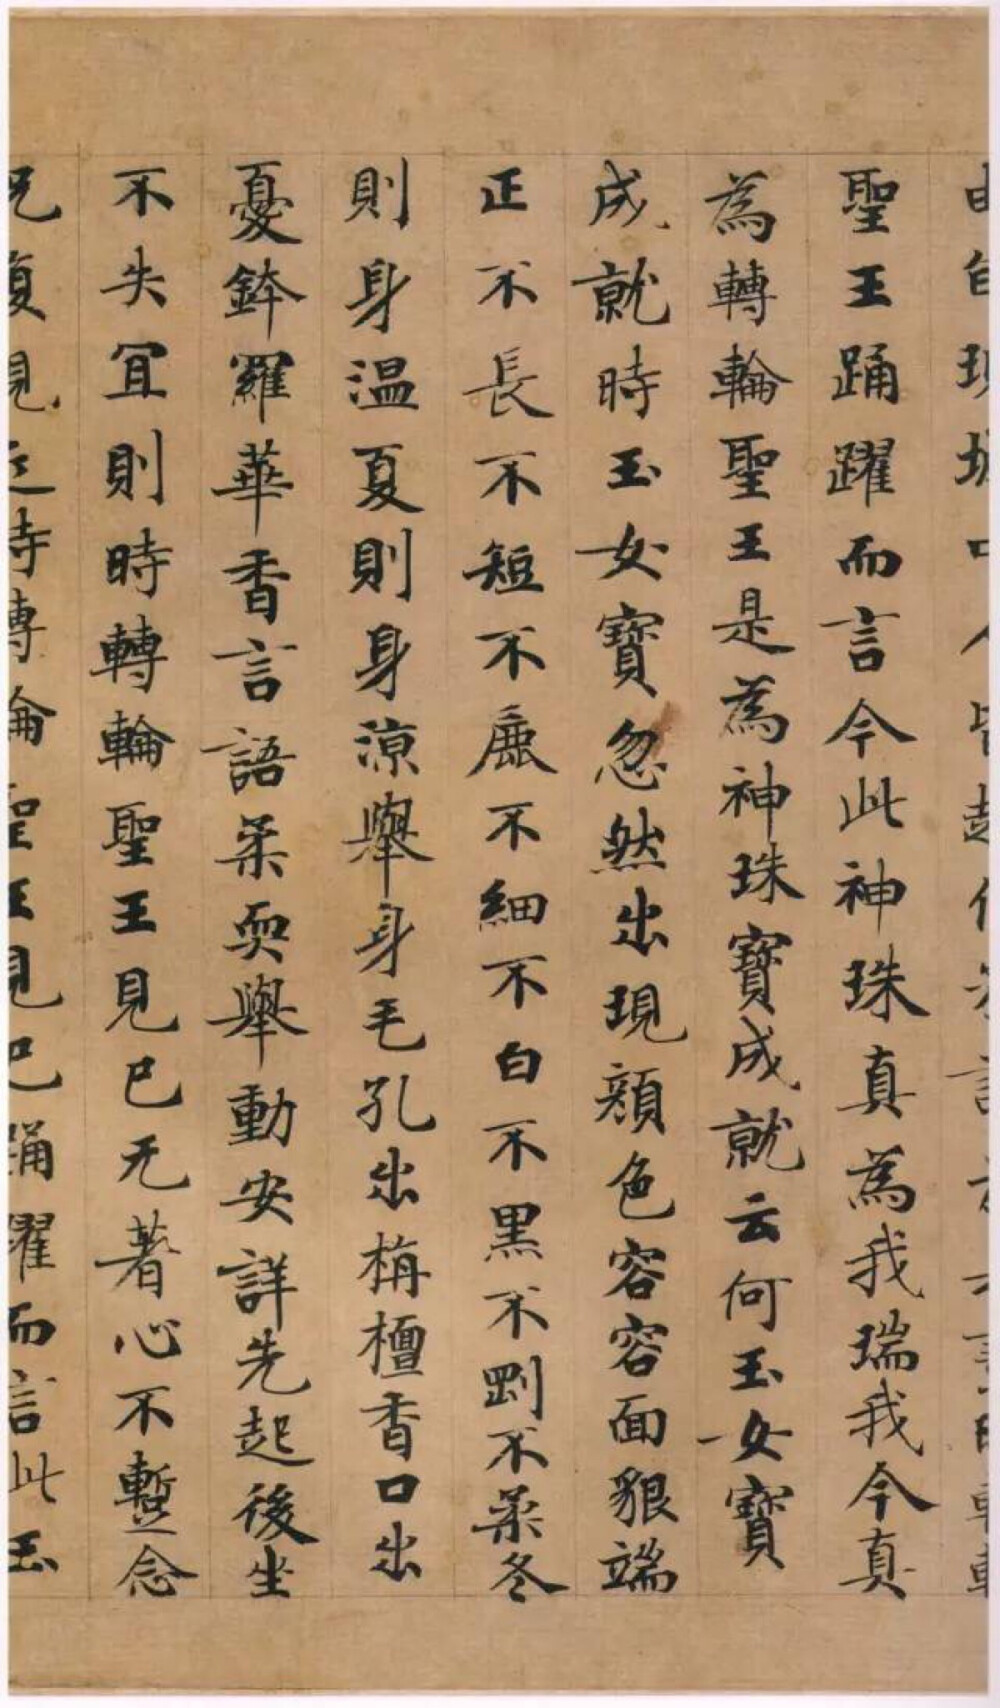 聖王踊躍而言今此神珠真為我瑞我今真
為轉輪聖王是為神珠寶成就云何玉女寶
成就時玉女寶忽然出現顏色容容面貇端
正不長不短不麁不細不白不黑不剛不柔冬
則身温夏則身涼舉身毛孔出栴檀香口出
憂鉢羅華香言語柔耎舉動安詳先起後坐
不失宜則時轉輪聖王見已无著心不蹔念
況復親近時轉輪聖王見已踊躍而言此玉